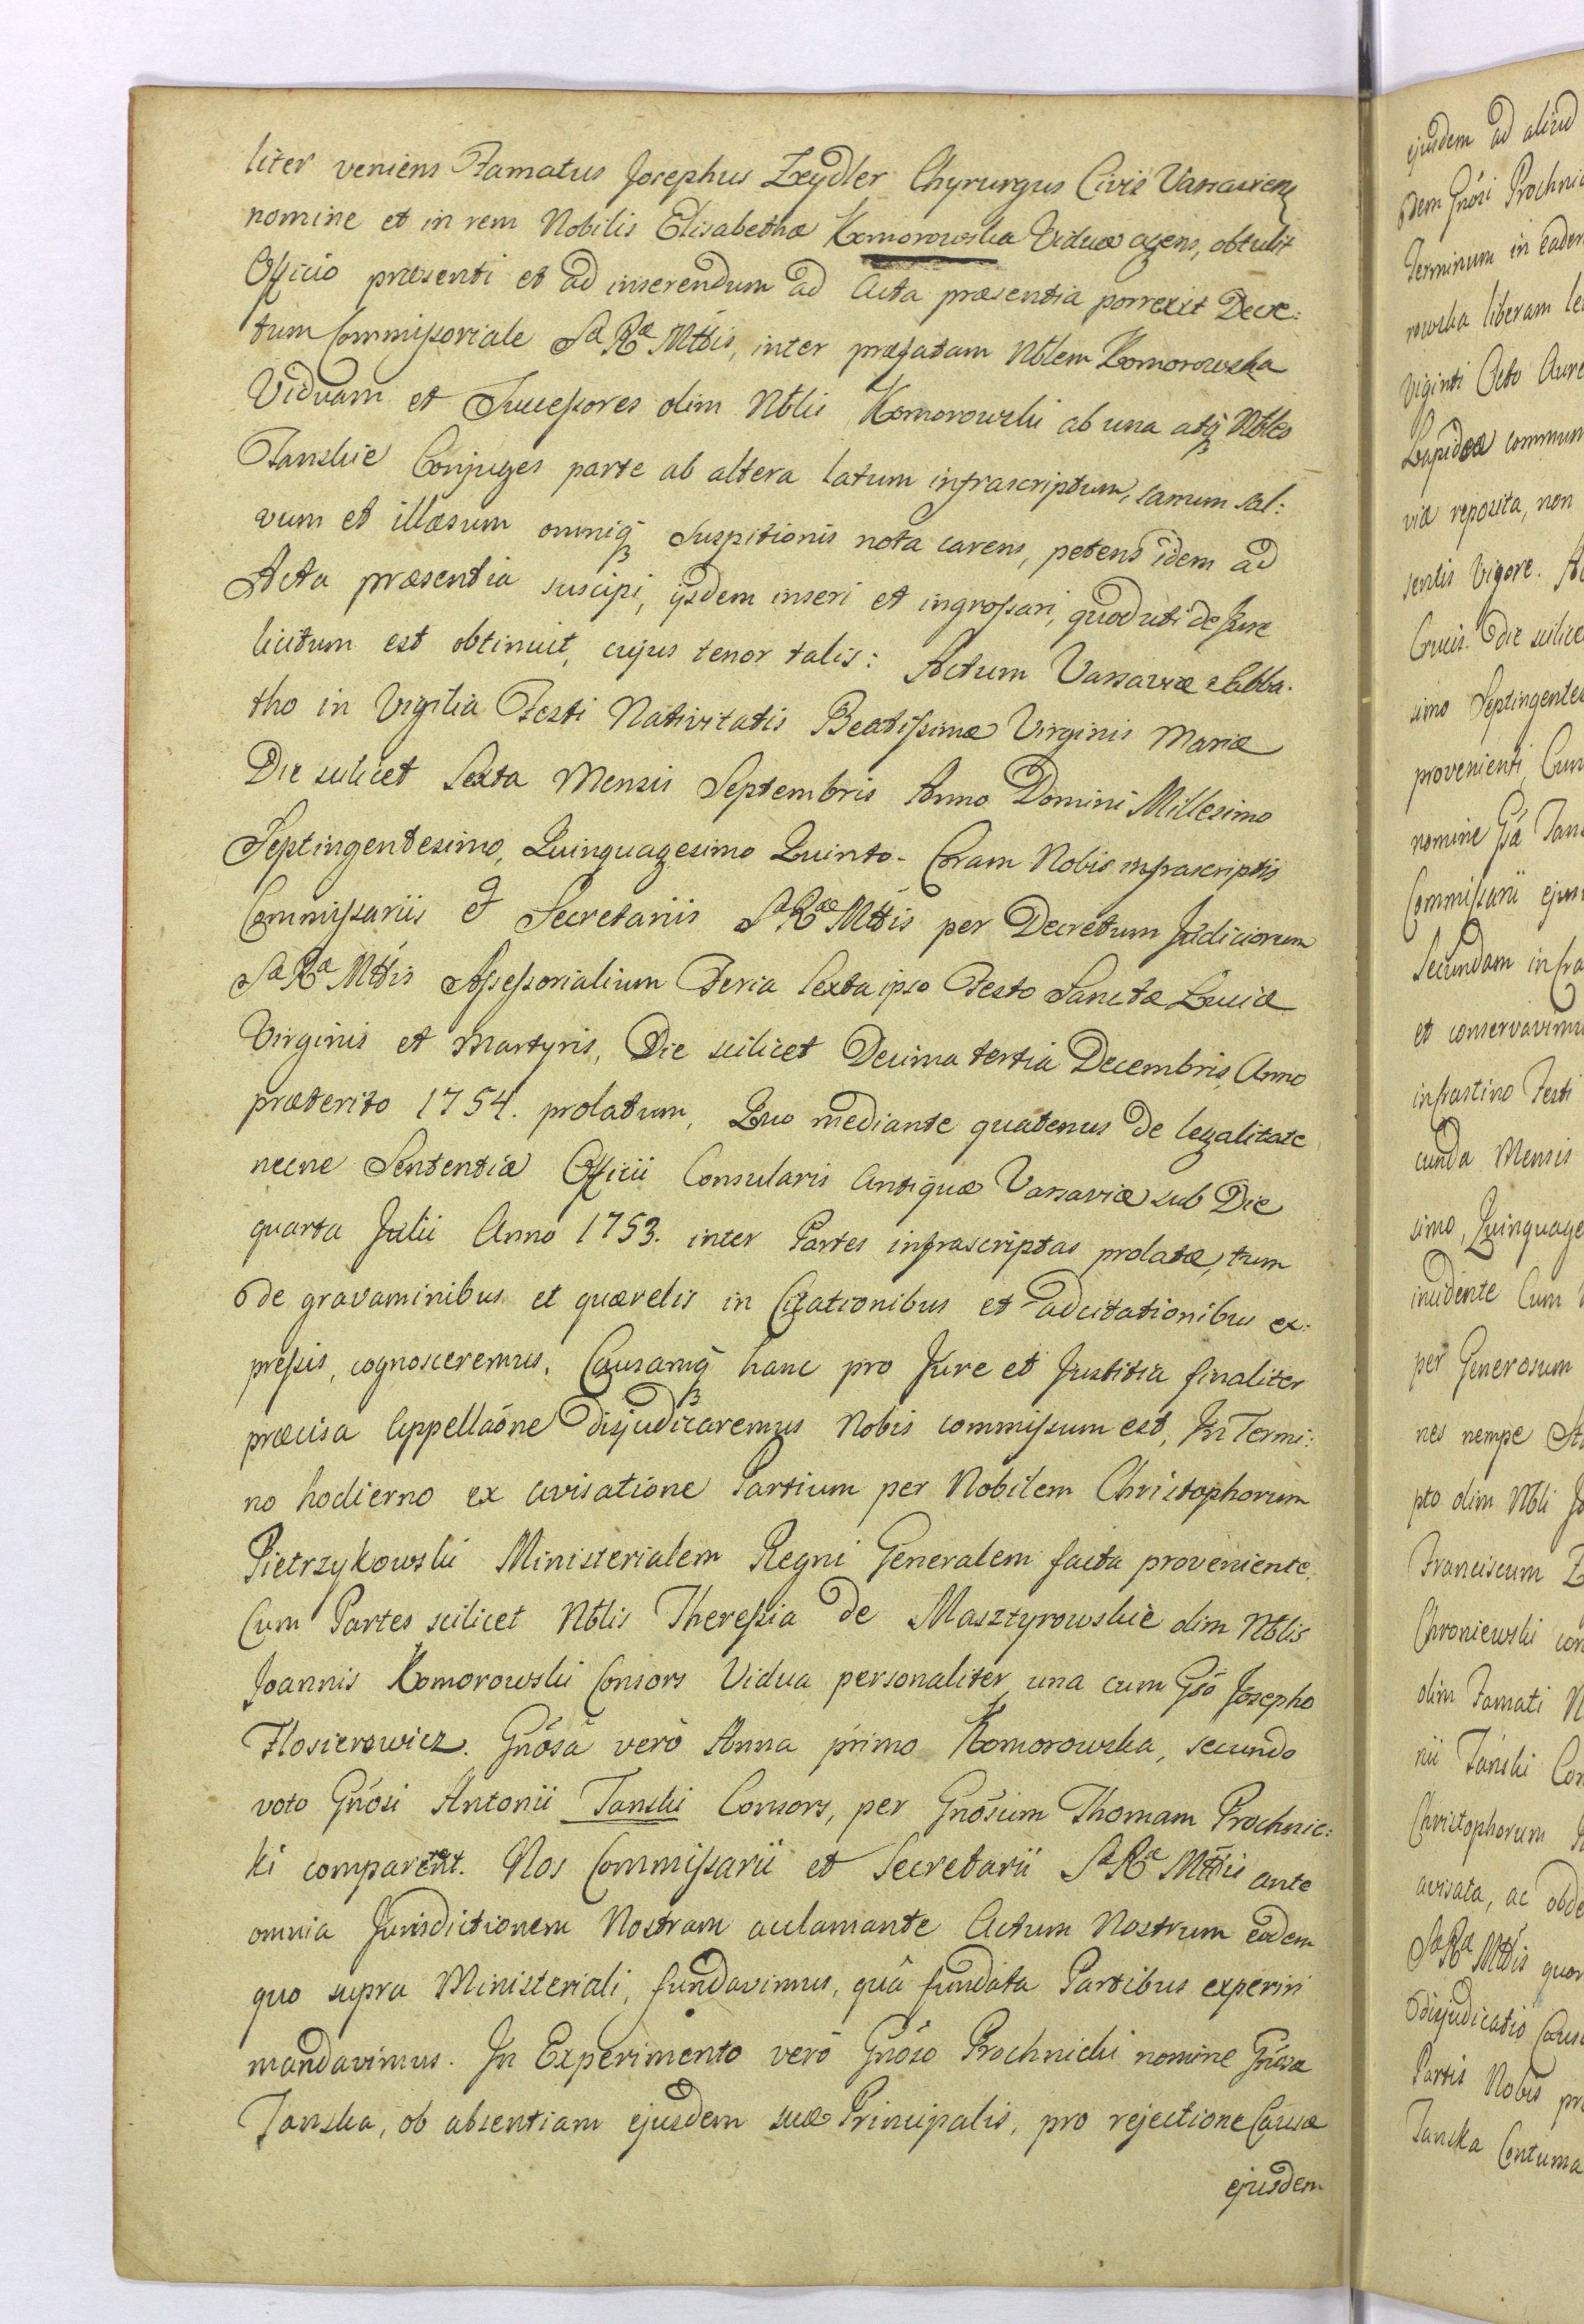 liter veniens Famatus Josephus Zeydler Chyrurgus Civis Varsavien
nomine et in rem Nobilis Elisabethæ Komorowska Viduæ agens, obtulit
Officio præsenti et ad inserendum ad Acta præsentia porrexit Decre:
tum Commissoriale Sæ Ræ Mttis, inter præfatam Nblem Komorowska
Viduam et Successores olim Nblis Komorowski ab una atq Nbles
Tanskie Conjuges parte ab altera latum infrascriptum, sanum sal:
vum et illæsum omniq suspitionis nota carens, petens idem ad
Acta præsentia suscipi, ijsdem inseri et ingrossari, quod uti de Jure
licitum est obtinuit, cujus tenor talis: Actum Varsaviæ Sabba:
tho in Vigilia Festi Nativitatis Beatissimæ Virginis Mariæ
Die scilicet Sexta Mensis Septembris Anno Domini Millesimo
Septingentesimo, Quinquagesimo Quinto. Coram Nobis infrascriptis
Commissariis et Secretariis Sæ Ræ Mttis per Decretum Judiciorum
Sæ Ræ Mttis Assessorialium Feria Sexta ipso Festo Sanctæ Luciæ
Virginis et Martyris, Die scilicet Decima tertia Decembris Anno
præterito 1754. prolatum, Quo mediante quatenus de legalitate
necne Sententiæ Officii Consularis Antiquæ Varsaviæ sub Die
quarta Julii Anno 1753. inter Partes infrascriptas prolatæ, tum
de gravaminibus et quærelis in Citationibus et adcitationibus ex:
pressis, cognosceremus. Causamq hanc pro Jure et Justitia finaliter
præcisa Appellaône disjudicaremus Nobis commissum est, In Termi:
no hodierno ex avisatione Partium per Nobilem Christophorum
Pietrzykowski Ministerialem Regni Generalem facta proveniente.
Cum Partes scilicet Nblis Theressia de Masztyrowskie olim Nblis
Joannis Komorowski Consors Vidua personaliter una cum Gso Josepho
Flosierowicz. Gnôsa verò Anna primo Komorowska, secundo
voto Gnôsi Antonii Tanski Consors, per Gnôsum Thomam Prochnic:
ki comparerent. Nos Commissarii et Secretarii Sæ Ræ Mttis ante
omnia Jurisdictionem Nostram acclamante Actum Nostrum eodem
quo supra Ministeriali, fundavimus, quâ fundata Partibus experiri
mandavimus. In Experimento verò Gnôso Prochnicki nomine Gnôsæ
Tanska, ob absentiam ejusdem suæ Principalis, pro rejectione Causæ
ejusdem
ejusdem ad aliud
dem Gnôsi Prochnic
Terminum in eadem
rowska liberam le
Viginti Octo Aure
Lapidea commun
viæ reposita, non
sentis Vigore.
Crucis. Die scilice
simo Septingente
provenienti, Cum
nomine Gsæ Tans
Commissarii ejus
Secundam infra
et conservavimus
infrastino Festi
cunda Mensis
simo, Quinquage
incidente Cum
per Generosum
nes nempe
pto olim Nbli
Franciscum
Chroniewski con
olim Famati N
nii Tański Con
Christophorum
avisata, ac obde
Sæ Ræ Mttis quor
disjudicatio Caus
Partis Nobis pr
Tanska Contuma